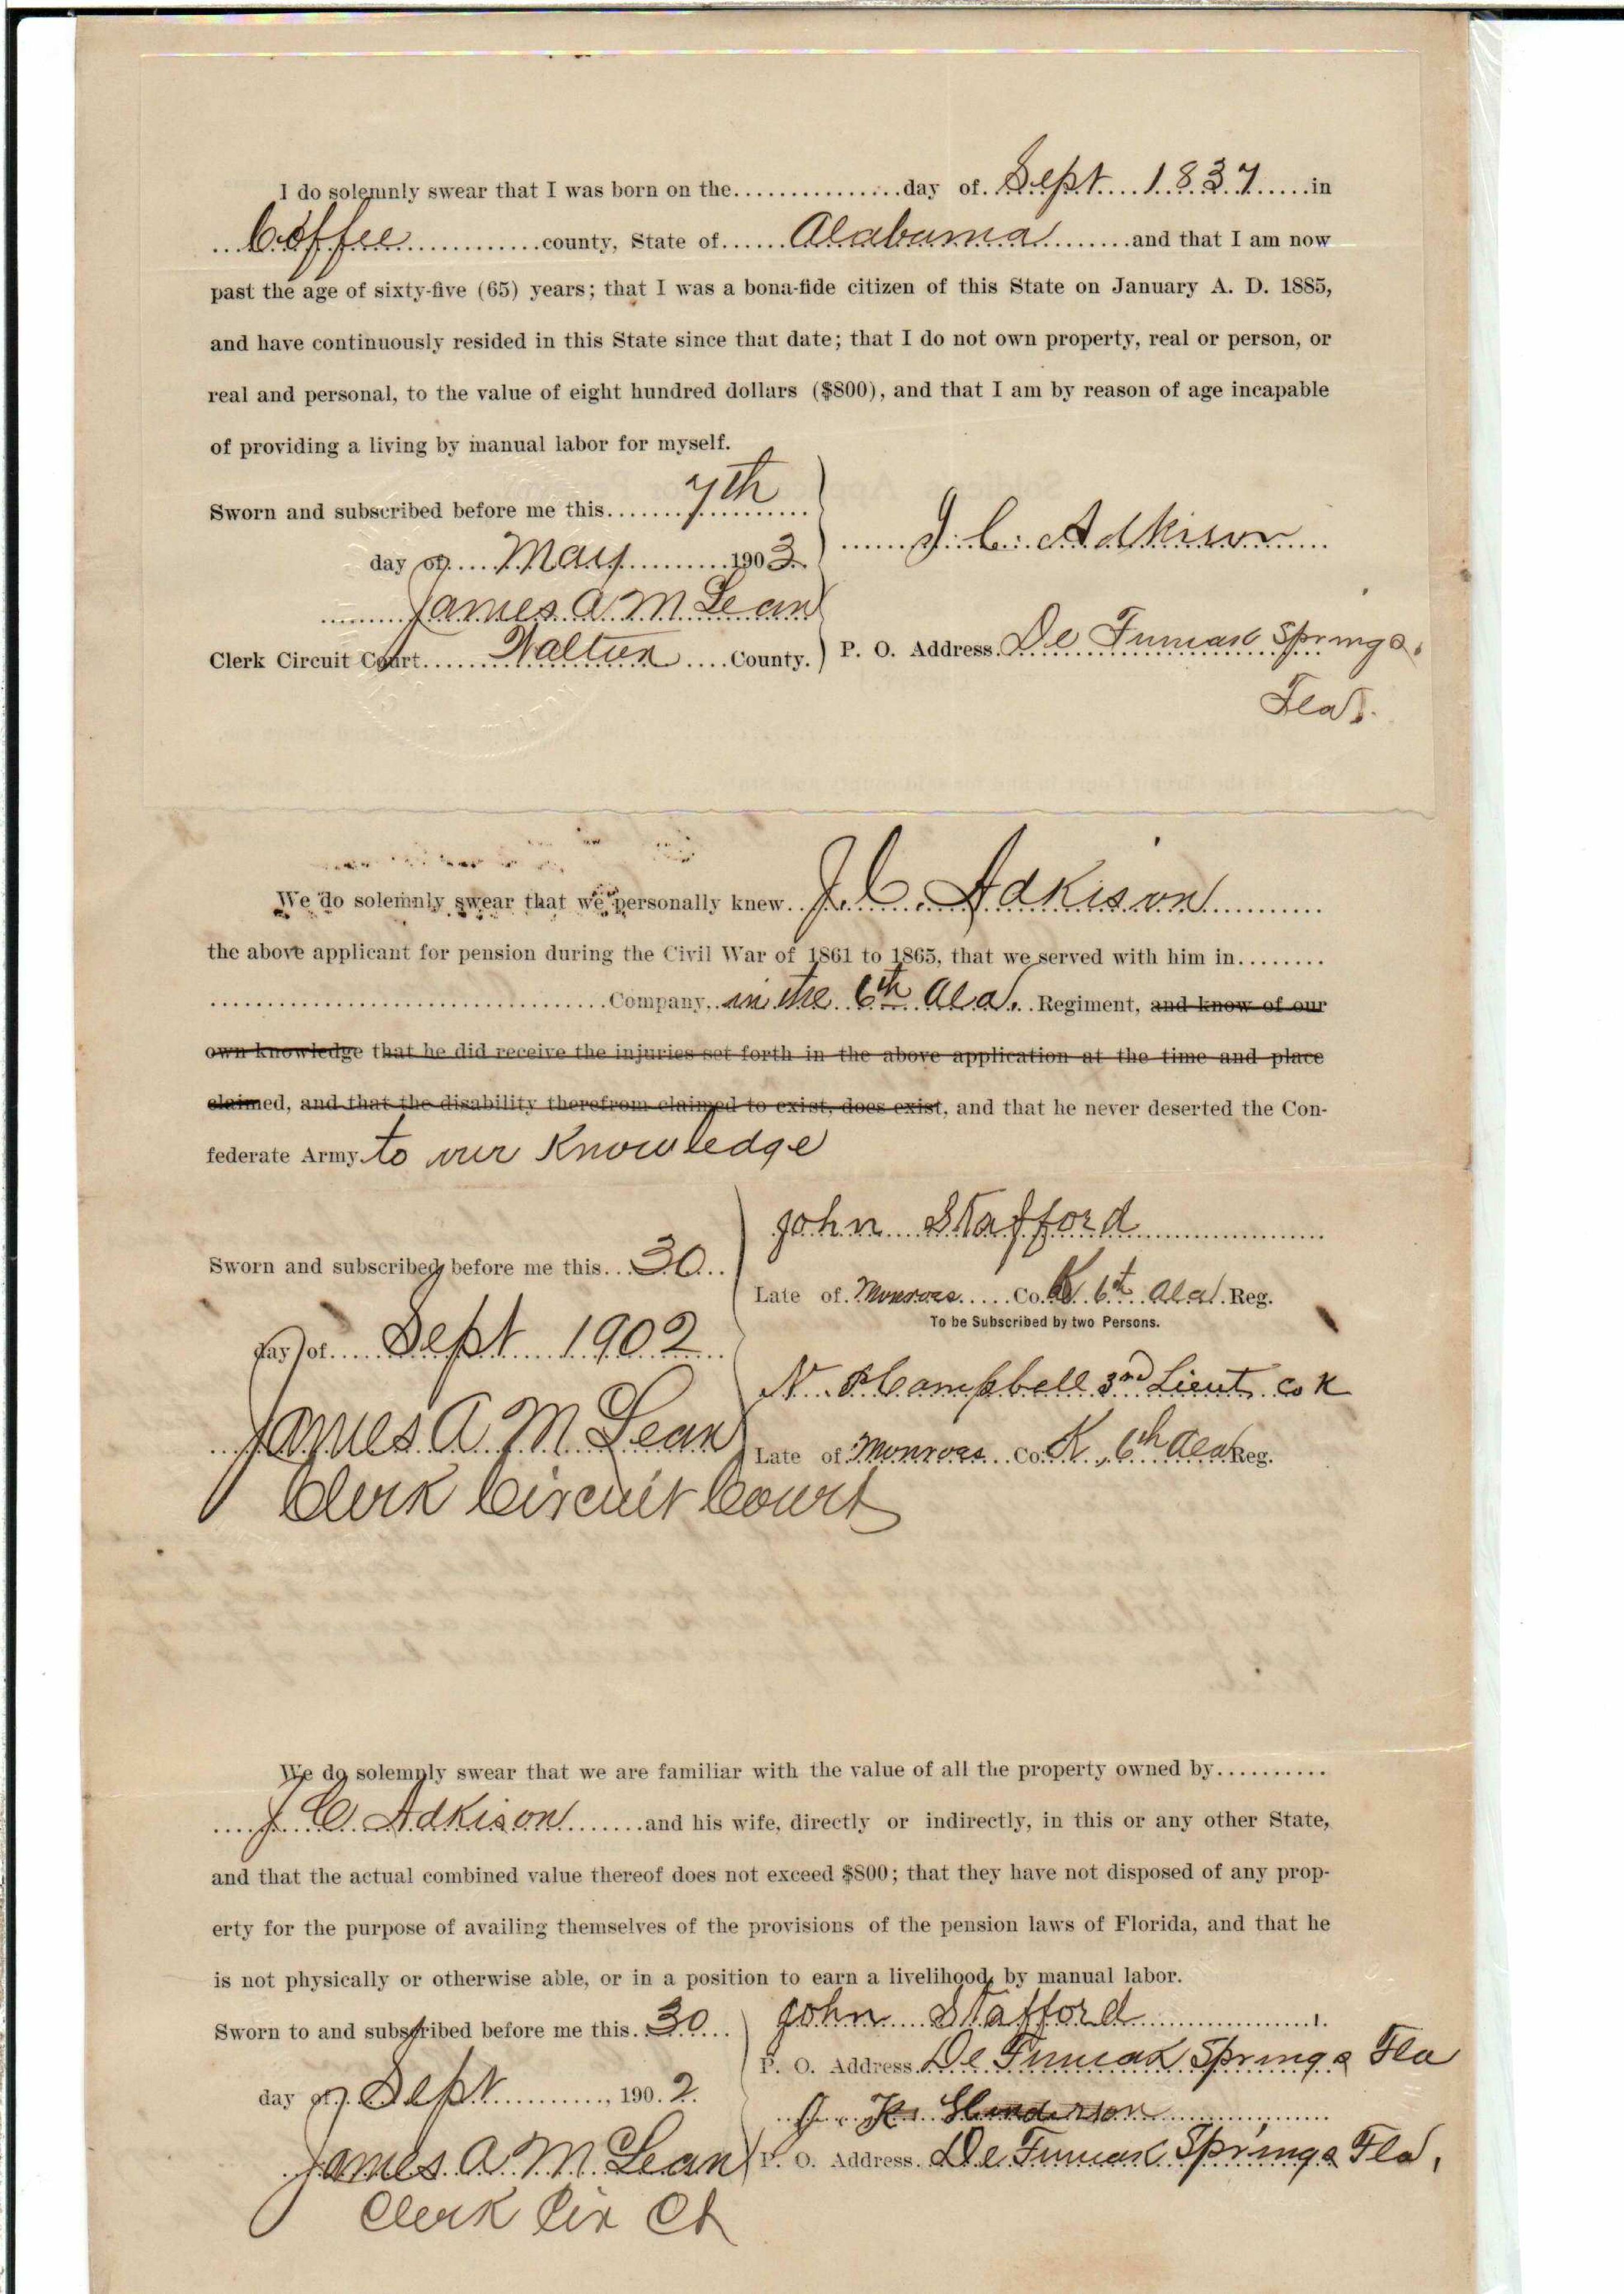 I do solemnly swear that I was born on the................day of. Sept 1837 in
Coffee county, State of Alabama and that I am now
past the age of sixty-five (65) years; that I was a bona-fide citizen of this State on January A. D. 1885,
and have continuously resided in this State since that date; that I do not own property, real or person, or
real and personal, to the value of eight hundred dollars ($800), and that I am by reason of age incapable
of providing a living by manual labor for myself.
Sworn and subscribed before me this 7th
day of May 1903
J. C. Adkison
James A McLean
Clerk Circuit Court Walton County.
P. O. Address. De Funiak Springs,
Fla.
We do solemnly swear that we personally knew J. C. Adkison
the above applicant for pension during the Civil War of 1861 to 1865, that we served with him in........
Company in the 6th Ala. Regiment, and know of our
own knowledge that he did receive the injuries set forth in the above application at the time and place
claimed, and that the disability therefrom claimed to exist, does exist, and that he never deserted the Con-
federate Army to our Knowledge
John Stafford
Sworn and subscribed before me this 30
Late of Monroes Co. K 6th Ala. Reg.
To be Subscribed by two Persons.
day of Sept 1902
N. Campbell 3rd Lieut. Co K
James A McLean
Late of Monroes Co. K, 6th Ala Reg.
Clerk Circuit Court
We do solemnly swear that we are familiar with the value of all the property owned by..........
J. C. Adkison and his wife, directly or indirectly, in this or any other State,
and that the actual combined value thereof does not exceed $800; that they have not disposed of any prop-
erty for the purpose of availing themselves of the provisions of the pension laws of Florida, and that he
is not physically or otherwise able, or in a position to earn a livelihood, by manual labor.
Sworn to and subscribed before me this 30
John Stafford
P. O. Address. De Funiak Springs Fla
day of Sept, 1902.
J. K. Henderson
James A McLean
P. O. Address. De Funiak Springs Fla,
Clerk Cir Ct